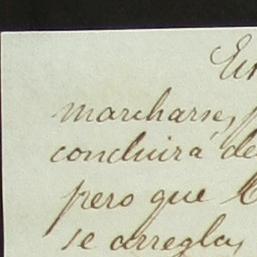 marcharse,
concluirá de
pero que
se arreglas